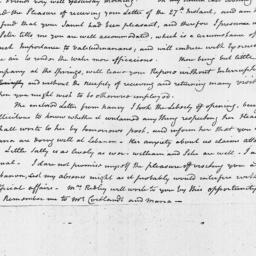 had the Pleasure of receiving your Letter of the 27th instant, am
find that your Travel had been pleasant, and therefore I presume
John tells me you are well accommodated, which is a circumstance of
such Importance to Valetudinarians, and will conduce with
air to render the water more efficacious. There being but little
Company at the Springs, will leave your Repose without Interruption
and without the necessity of receiving and returning many visits
when you might want to be otherwise employed.
The enclosed Letter from Nancy I took the liberty of opening, being
solicitous to know whether it contained any thing respecting her Health
shall write to her by tomorrows post, and inform her that you
are doing well at Lebanon. Her anxiety about us claims
Little Sally is as lively as ever. William and John are well. I am
usual. I dare not promise myself the pleasure of visiting you
Lebanon, lest my absence might as it probably would interfere with
official affairs. Mrs Ridley will write to you by this opportunity
Remember me to Mrs Cortlandt and Maria